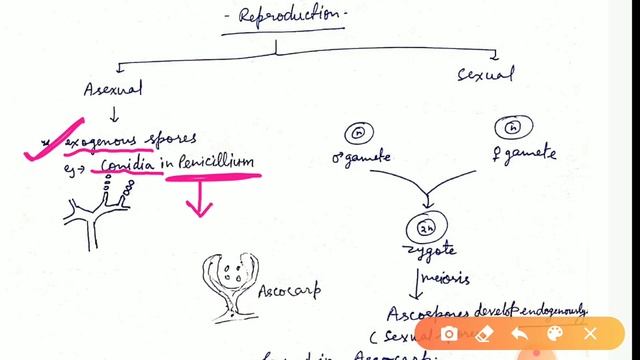 - Reproduction -
Asexual
Sexual
* exogenous spores
eg → Conidia in Penicillium
n
♂ gamete
n
♀ gamete
2n
zygote
meiosis
Ascocarp
Ascospores develop endogenously
( Sexual
Ascocarp.